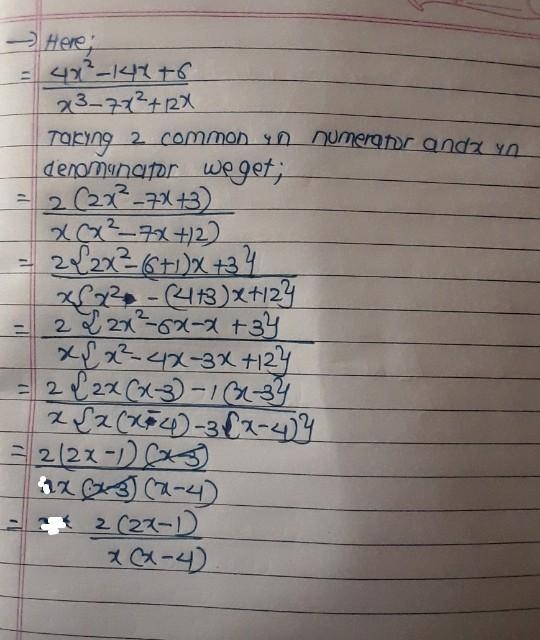 → Here;
= 4x²-14x+6
x³-7x²+12x
Taking 2 common in numerator and x in
denominator we get;
= 2(2x²-7x+3)
x(x²-7x+12)
= 2{2x²-(6+1)x+3}
x{x² -(4+3)x+12}
= 2{2x²-6x-x+3}
x{x²-4x-3x+12}
= 2{2x(x-3)-1(x-3}
x{x(x-4)-3(x-4)}
= 2(2x-1)(x-3)
x(x-3)(x-4)
= 2(2x-1)
x(x-4)